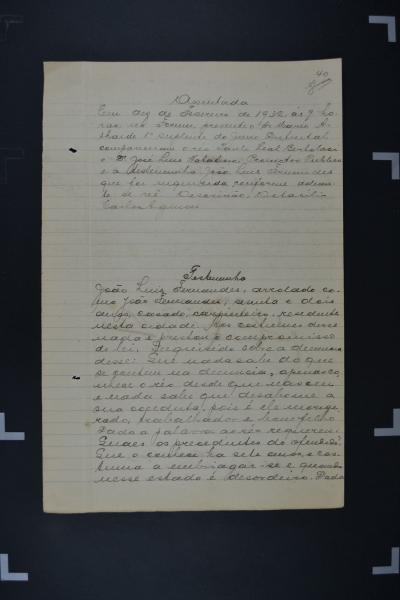 40
Assentada
Em dez de Fevereiro de 1932, ás 9 ho-
ras no Forum presente o Dr Mario A.
thaide 1º suplente do juiz Distrital
compareceram o réo Leal
o Dr. José Luis Promotor Publico
e a testemunha João Luiz Fernandes
que foi inquirida conforme adian-
te se vê. Do Escrivão,
Carlos
Testemunha
João Luiz Fernandes, arrolado co-
mo João Fernandes, trinta e dois
anos, casado, carpinteiro, residente
nesta cidade. Aos costumes disse
nada e prestou o compromisso
de lei. Inquirido sobre a denuncia
disse: Que nada sabe do que
se contem na denuncia, apenas co-
nhece o réo desde que nasceu
e nada sabe que desabone a
sua conduta, pois é ele morige-
rado, trabalhador e bom filho.
Dada a palavra ao réo requereu:
Quaes os precedentes do ofendido?
Que o conhece ha sete anos, e cos-
tuma a embriagar-se e quando
nesse estado é desordeiro. Dada